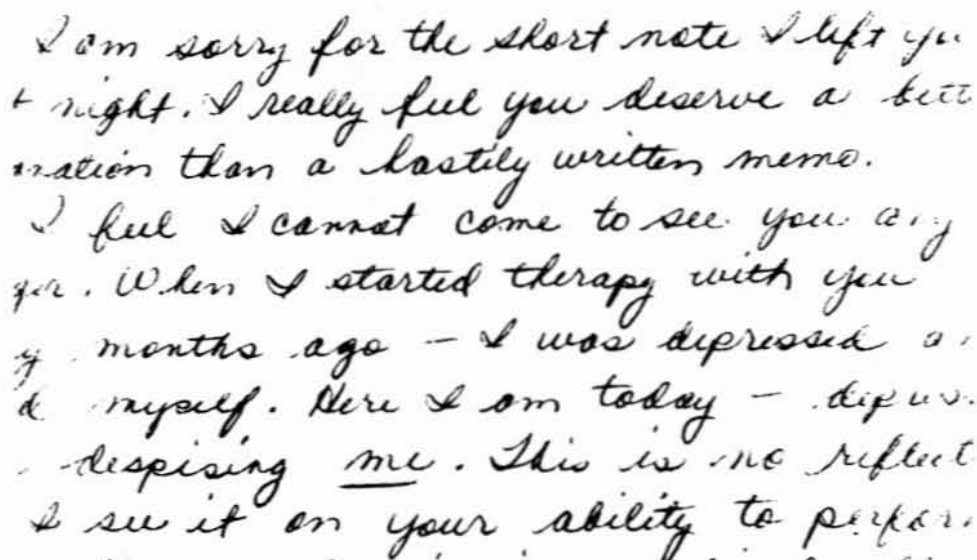 I am sorry for the short note I left yo
t night. I really feel you deserve a bett
nation than a hastily written memo.
I feel I cannot come to see you any
ger. When I started therapy with you
y months ago – I was depressed a
d myself. Here I am today – depres
despising me. This is no reflect
I see it on your ability to perfor